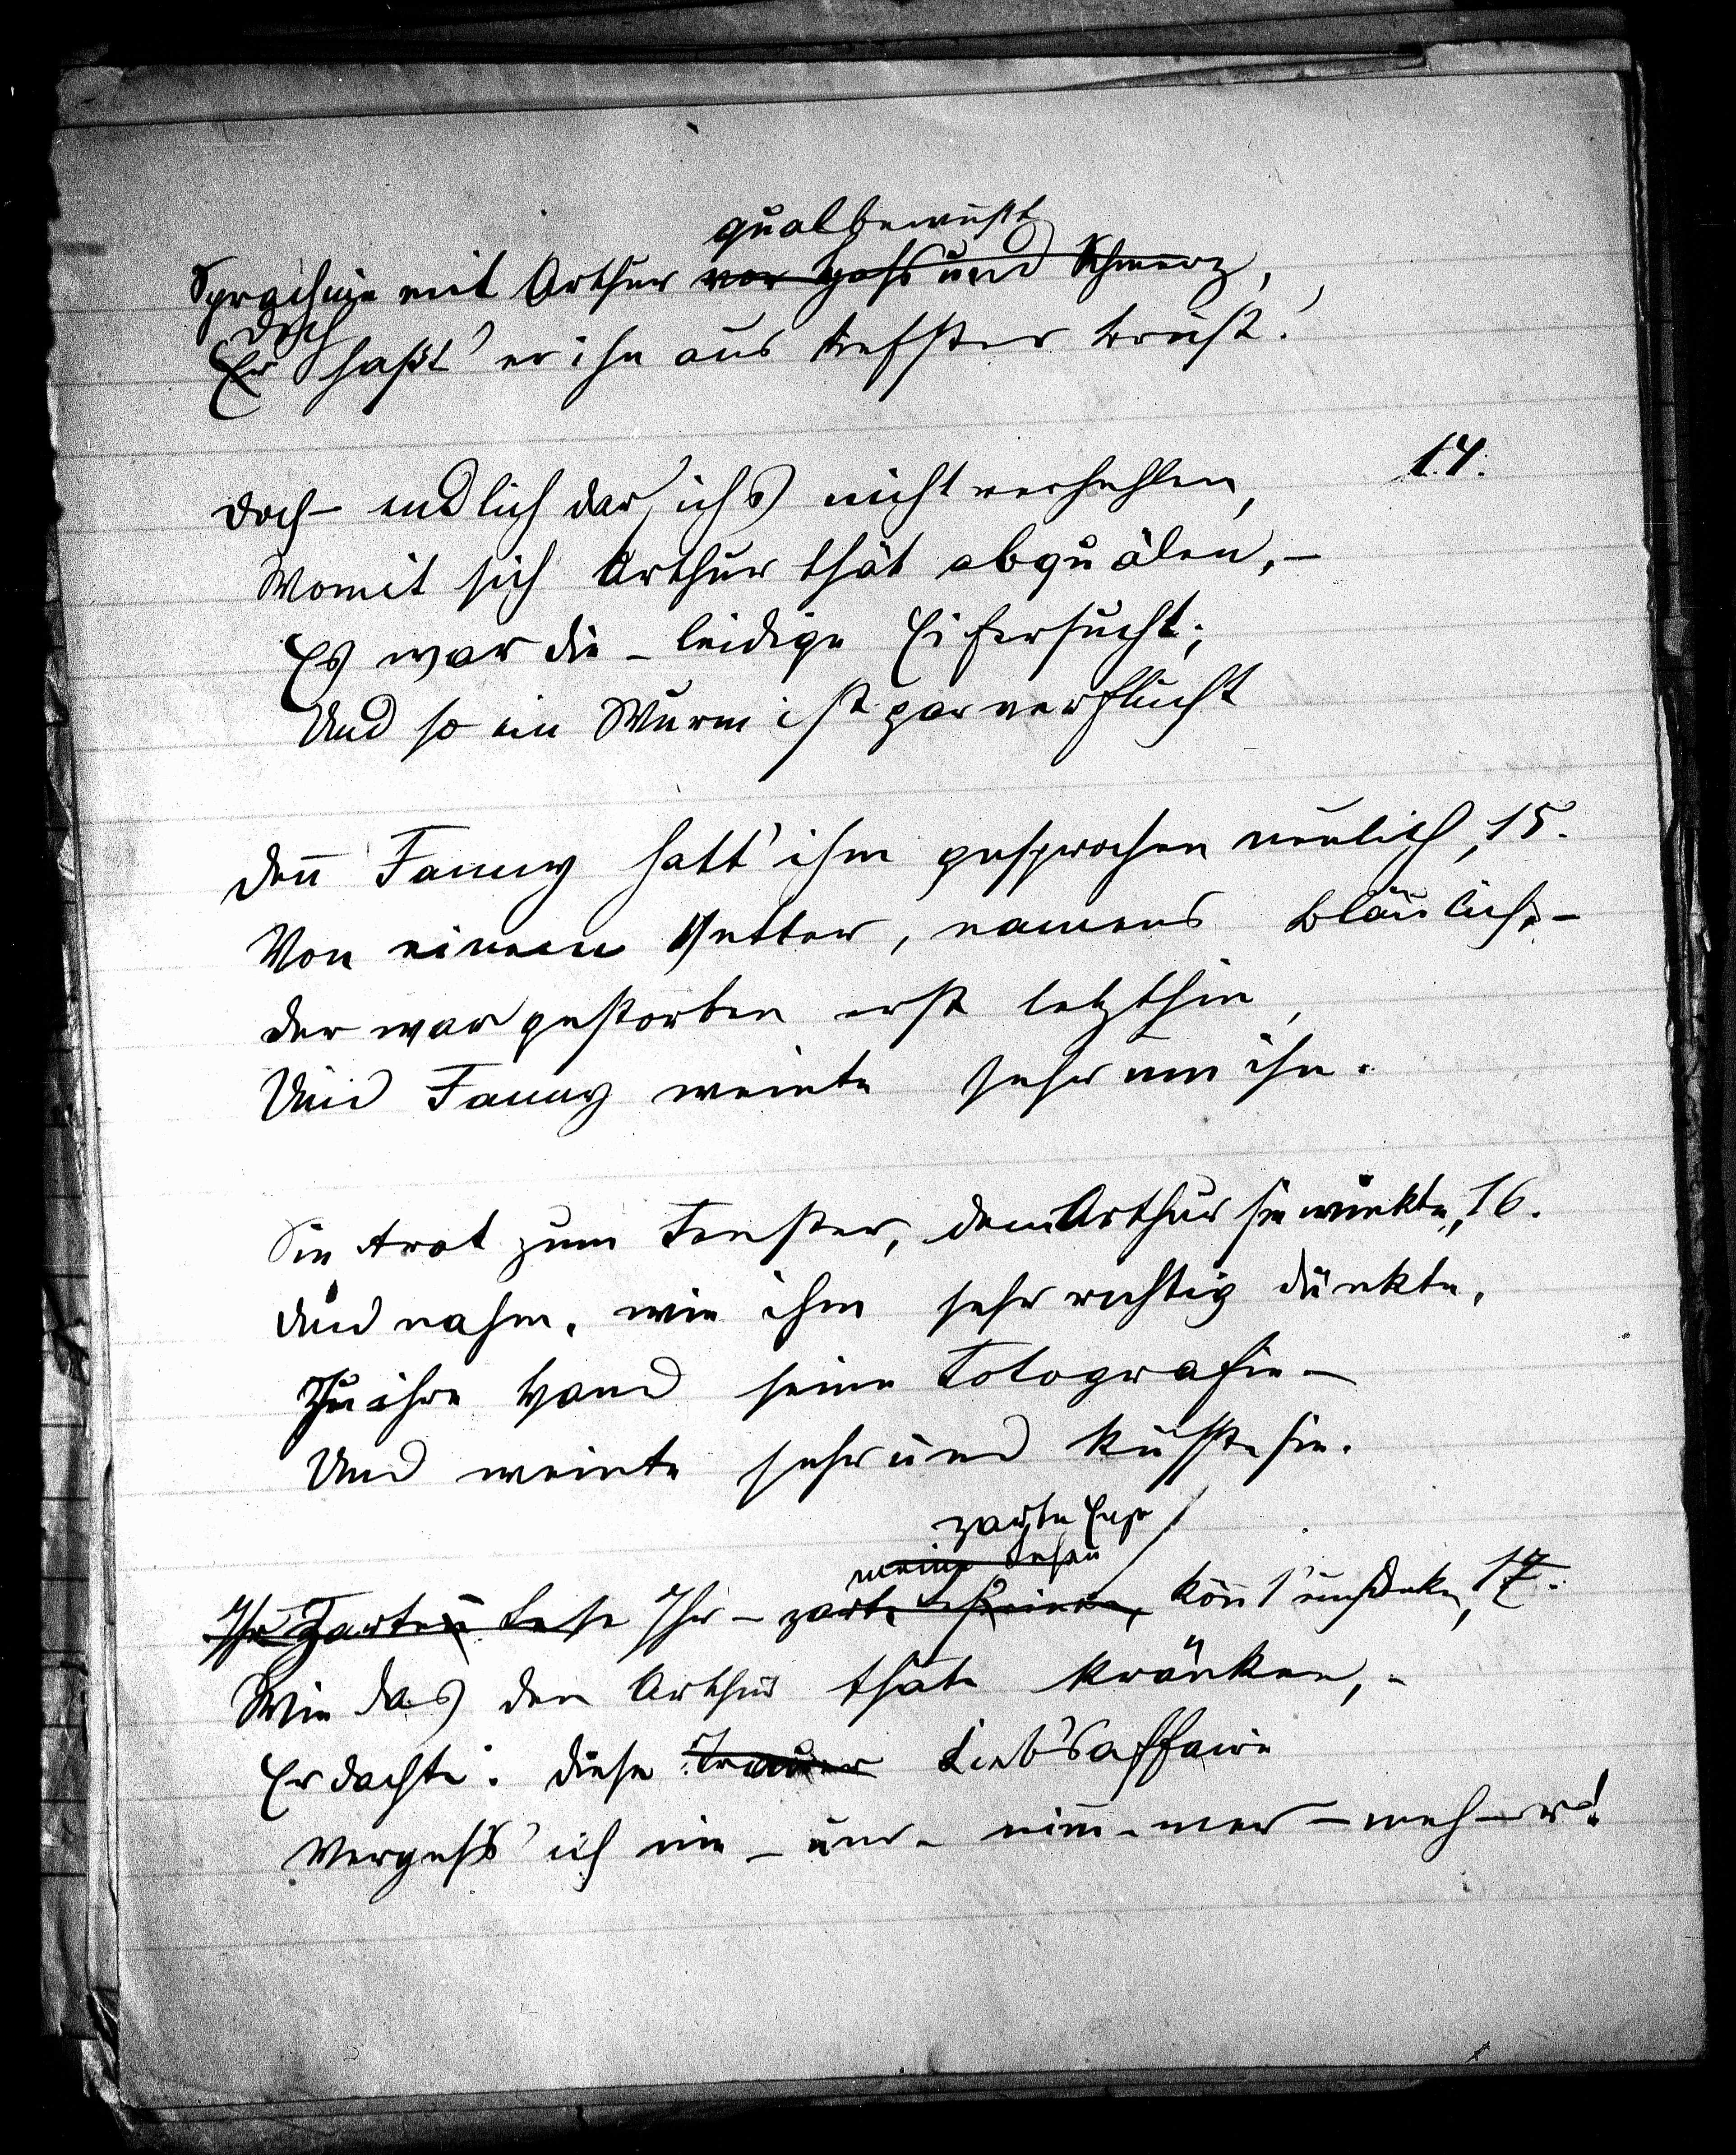 qualbewußt
Sprach nie mit Arthur vor Hass und Schmerz,
doch
Er haßt' er ihn aus tiefster Brust!
Doch – endlich darf ichs nicht verhehlen, 14.
Womit sich Arthur thät abquälen, –
Es war die – leidige Eifersucht;
Und so ein Wurm ist gar verflucht
Den̄ Fanny hatt' ihm gesprochen neulich, 15.
Von einem Vetter, namens Bläulich, –
Der war gestorben erst letzthin,
Und Fanny weinte sehr um ihn.
Sie trat zum Fenster, dem Arthur sie winkte, 16.
Und nahm, wie ihm sehr richtig dünkte,
In ihre Hand seine Fotografie –
Und weinte sehr und küsste sie.
zarte
meine
Ihr Zarten Lese Ihr – zarte kön̄t euch denken, 17.
Wie das den Arthur thäte kränken, –
Er dachte: diese Trauer Lieb'saffaire
Vergess' ich nie – und – nim̄-mer – meh-r!